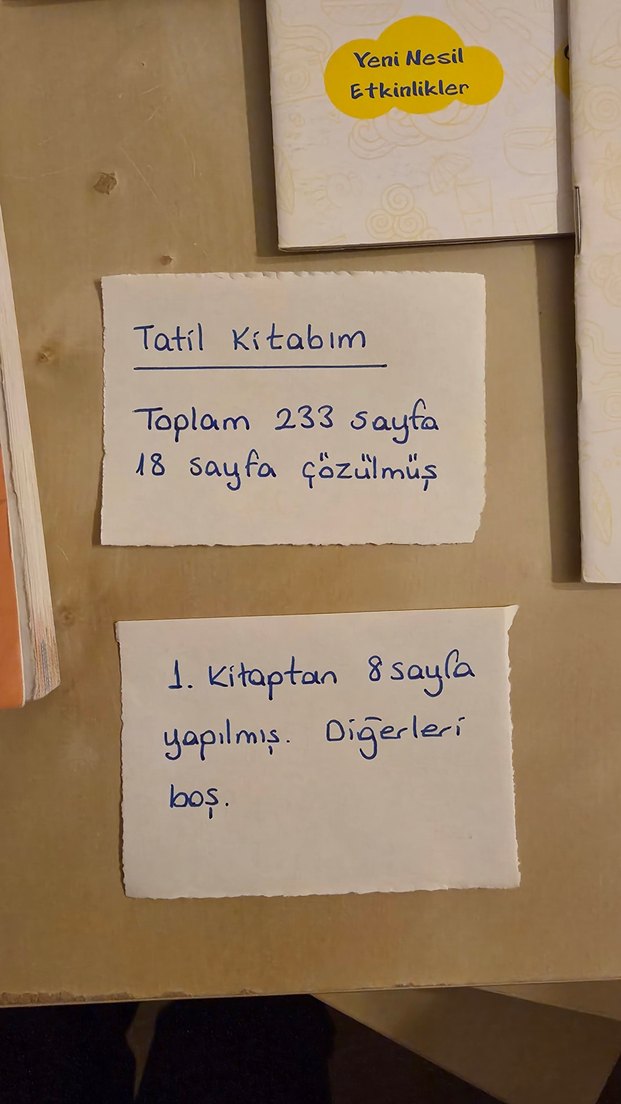 Yeni Nesil
Etkinlikler
Tatil Kitabım
Toplam 233 sayfa
18 sayfa çözülmüş
1. Kitaptan 8 sayfa
yapılmış. Diğerleri
boş.